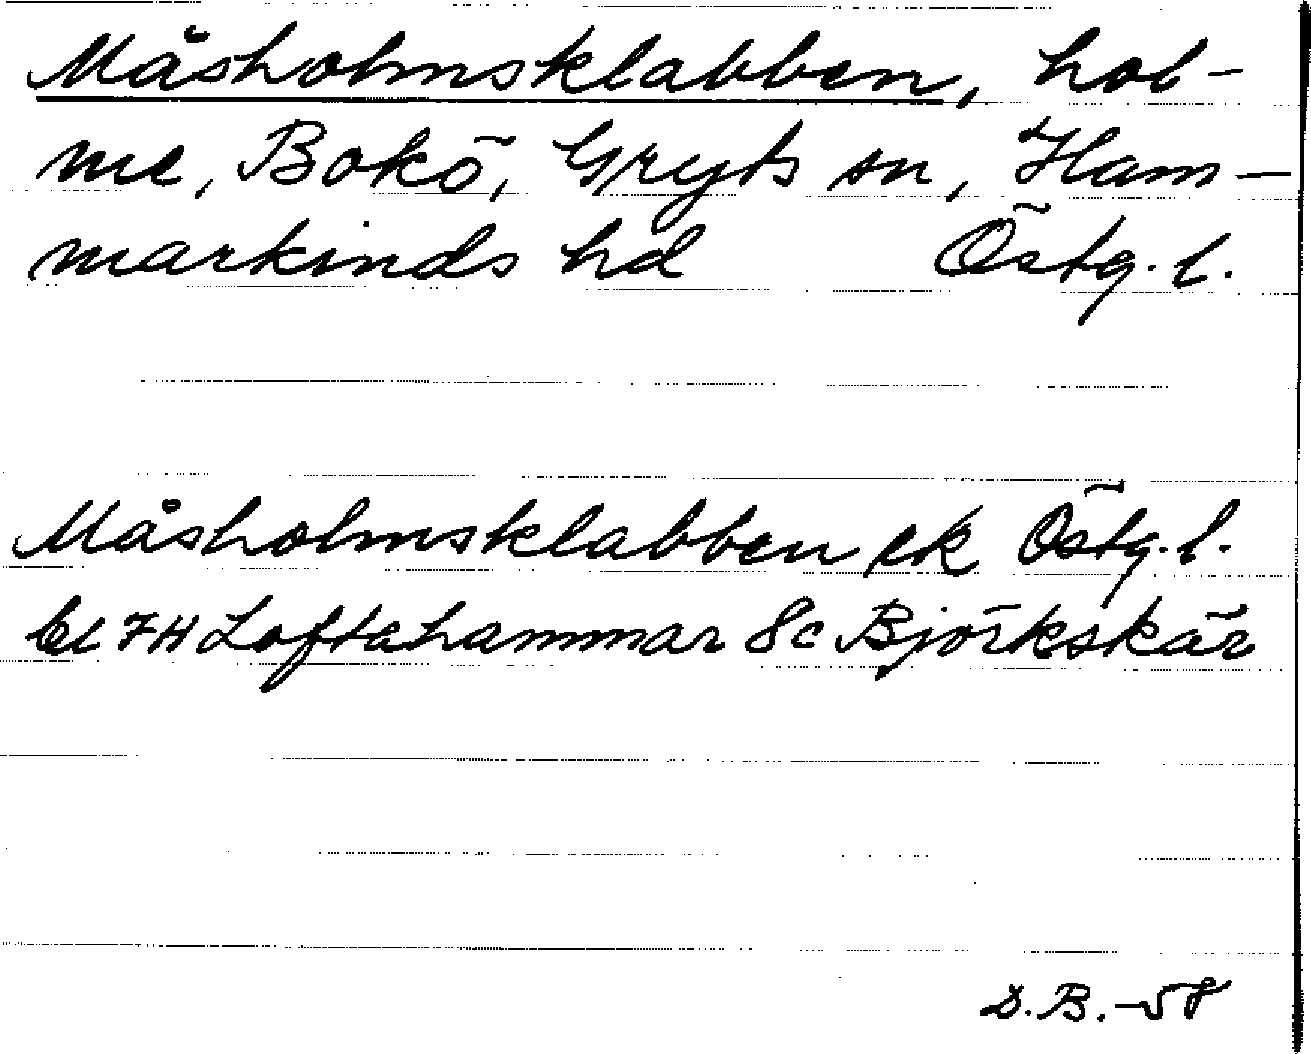 Måsholmsklabben, hol-
me, Bokö, Gryts sn, Ham-
markinds hd Östg. l.
Måsholmsklabben ek Östg. l.
bl 7H Loftahammar 8c Björkskär
D.B.-58